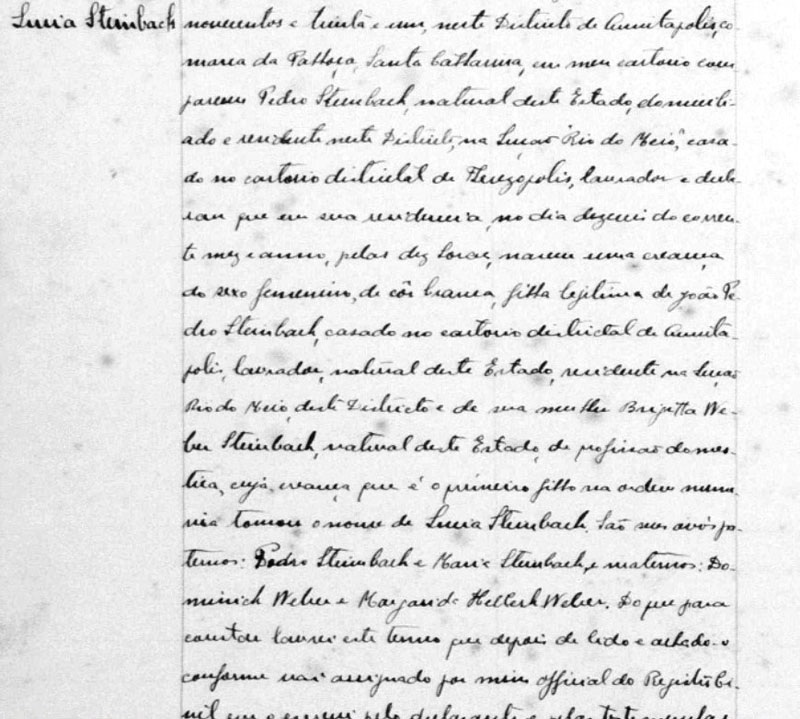 Lucia Steinbach
novecentos e trinta e um, neste Districto de Annitapolis, co-
marca da Palhoça, Santa Catharina, em meu cartorio com-
pareceu Pedro Steinbach, natural deste Estado, domicili-
ado e residente neste Districto, na Linha "Rio do Meio", casa-
do no cartorio districtal de Therezopolis, lavrador e decla-
rou que em sua residencia, no dia dezeseis do corren-
te mez e anno, pelas dez horas, nasceu uma creança
do sexo femenino, de côr branca, filha legitima de João Pe-
dro Steinbach, casado no cartorio districtal de Annita-
polis, lavrador, natural deste Estado, residente na Linha
Rio do Meio, deste Districto e de sua mulher Brigitta We-
ber Steinbach, natural deste Estado, de profissão domes-
tica, cuja creança que é o primeiro filho na ordem nume-
rica tomou o nome de Lucia Steinbach. São seus avós pa-
ternos: Pedro Steinbach e Maria Steinbach, e maternos: Do-
minich Weber e Margarida Weber. Do que para
constar lavrei este termo que depois de lido e achado
conforme vai assignado por mim official do Registro Ci-
vil que o escrevi pelo declarante e pelas testemunhas